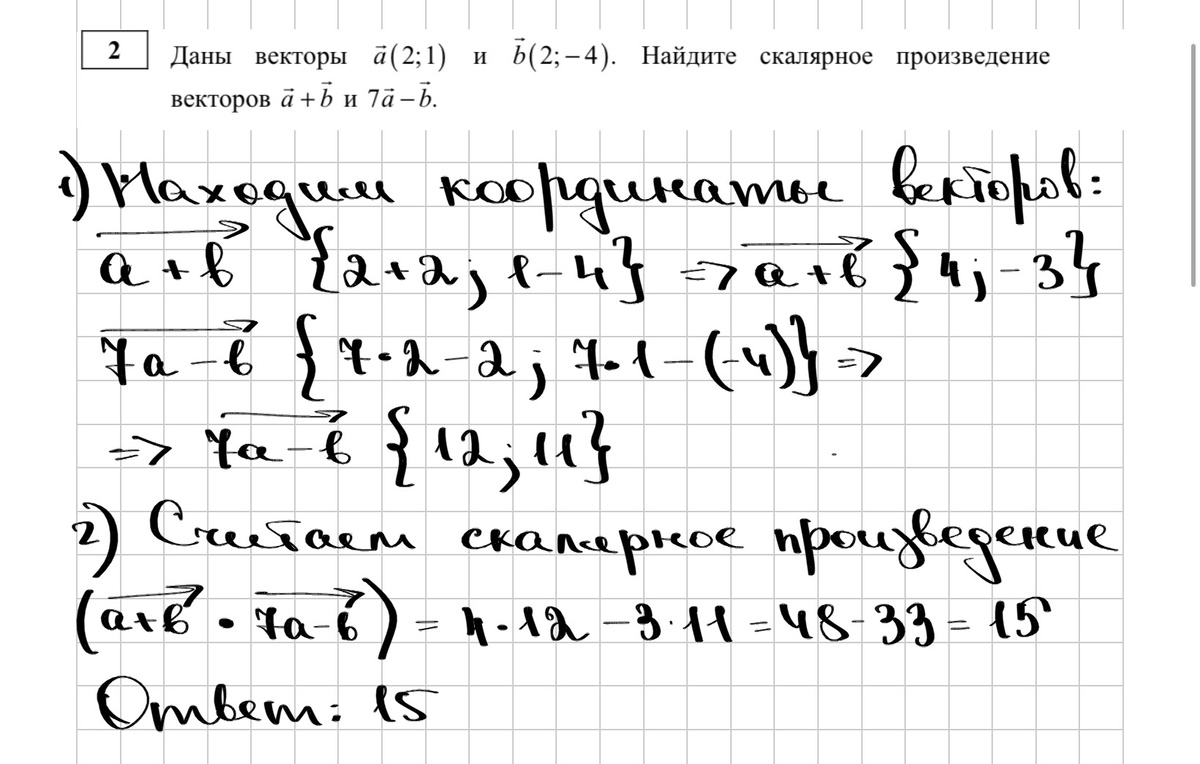 2 Даны векторы a⃗(2;1) и b⃗(2;−4). Найдите скалярное произведение
векторов a⃗+b⃗ и 7a⃗−b⃗.
1) Находим координаты векторов:
a+b {2+2; 1-4} => a+b {4; -3}
7a-b {7·2-2; 7·1-(-4)} =>
=> 7a-b {12; 11}
2) Считаем скалярное произведение
(a+b · 7a-b) = 4·12-3·11=48-33=15
Ответ: 15